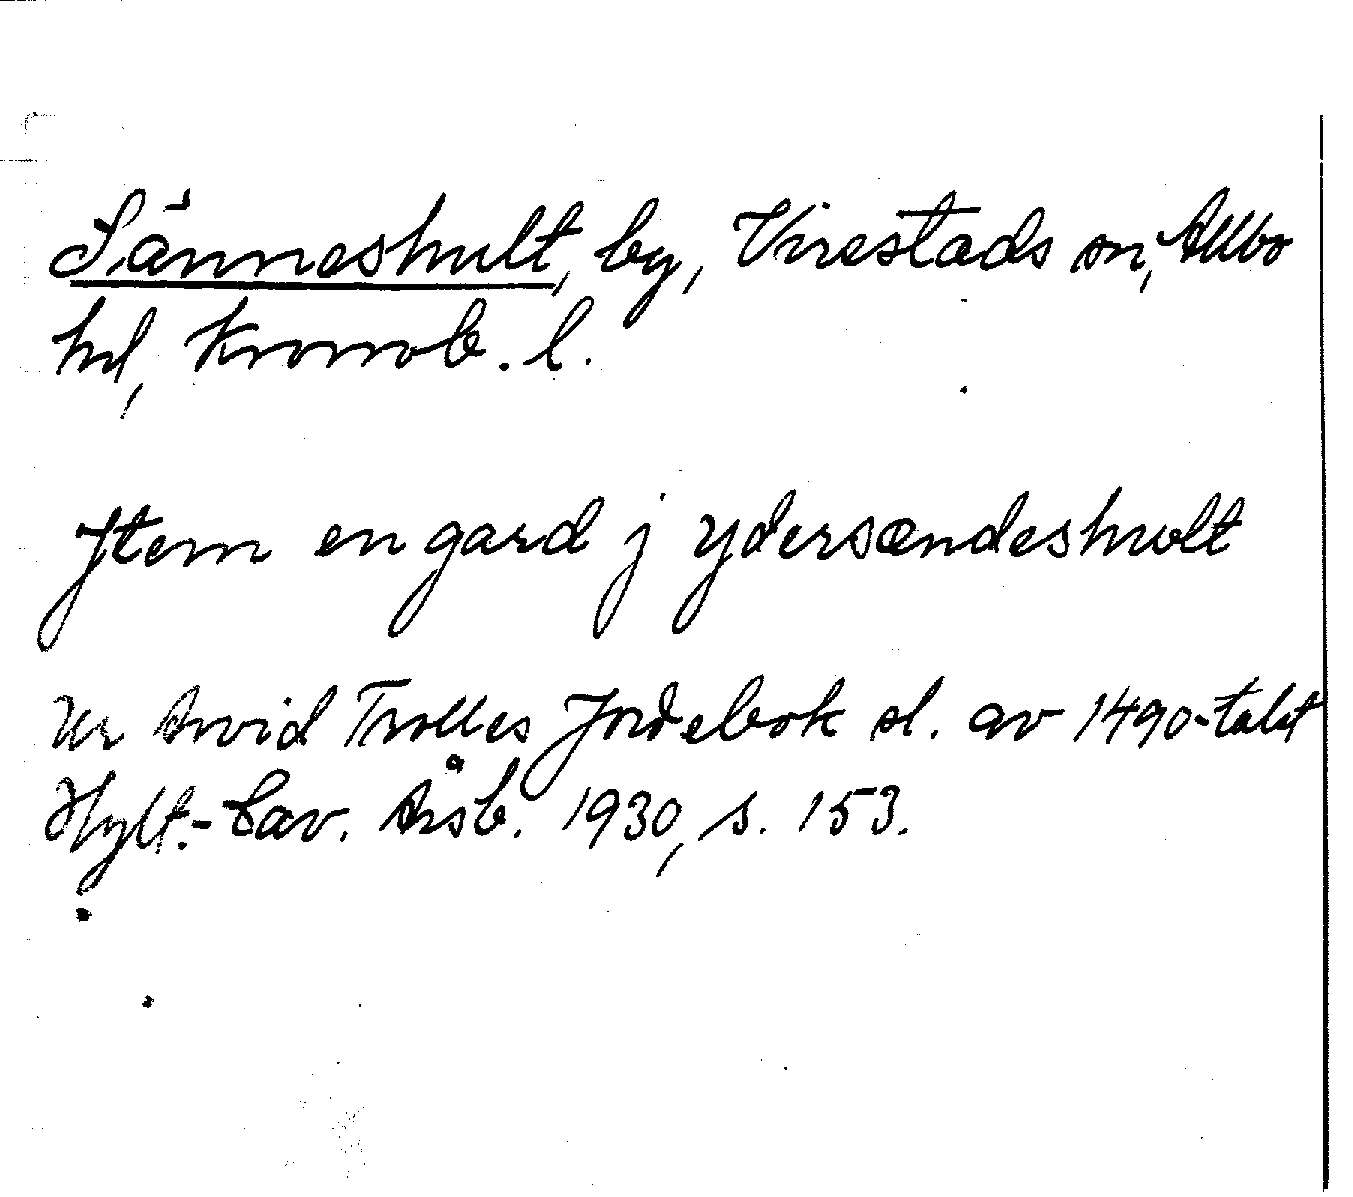 Sänneshult, by, Virestads sn, Allbo
hd, Kronob. l.
Jtem en gard j ydersændeshwlt
Ur Arvid Trolles Jordebok sl. av 1490-talet
Hylt.-Cav. Årsb. 1930, s. 153.